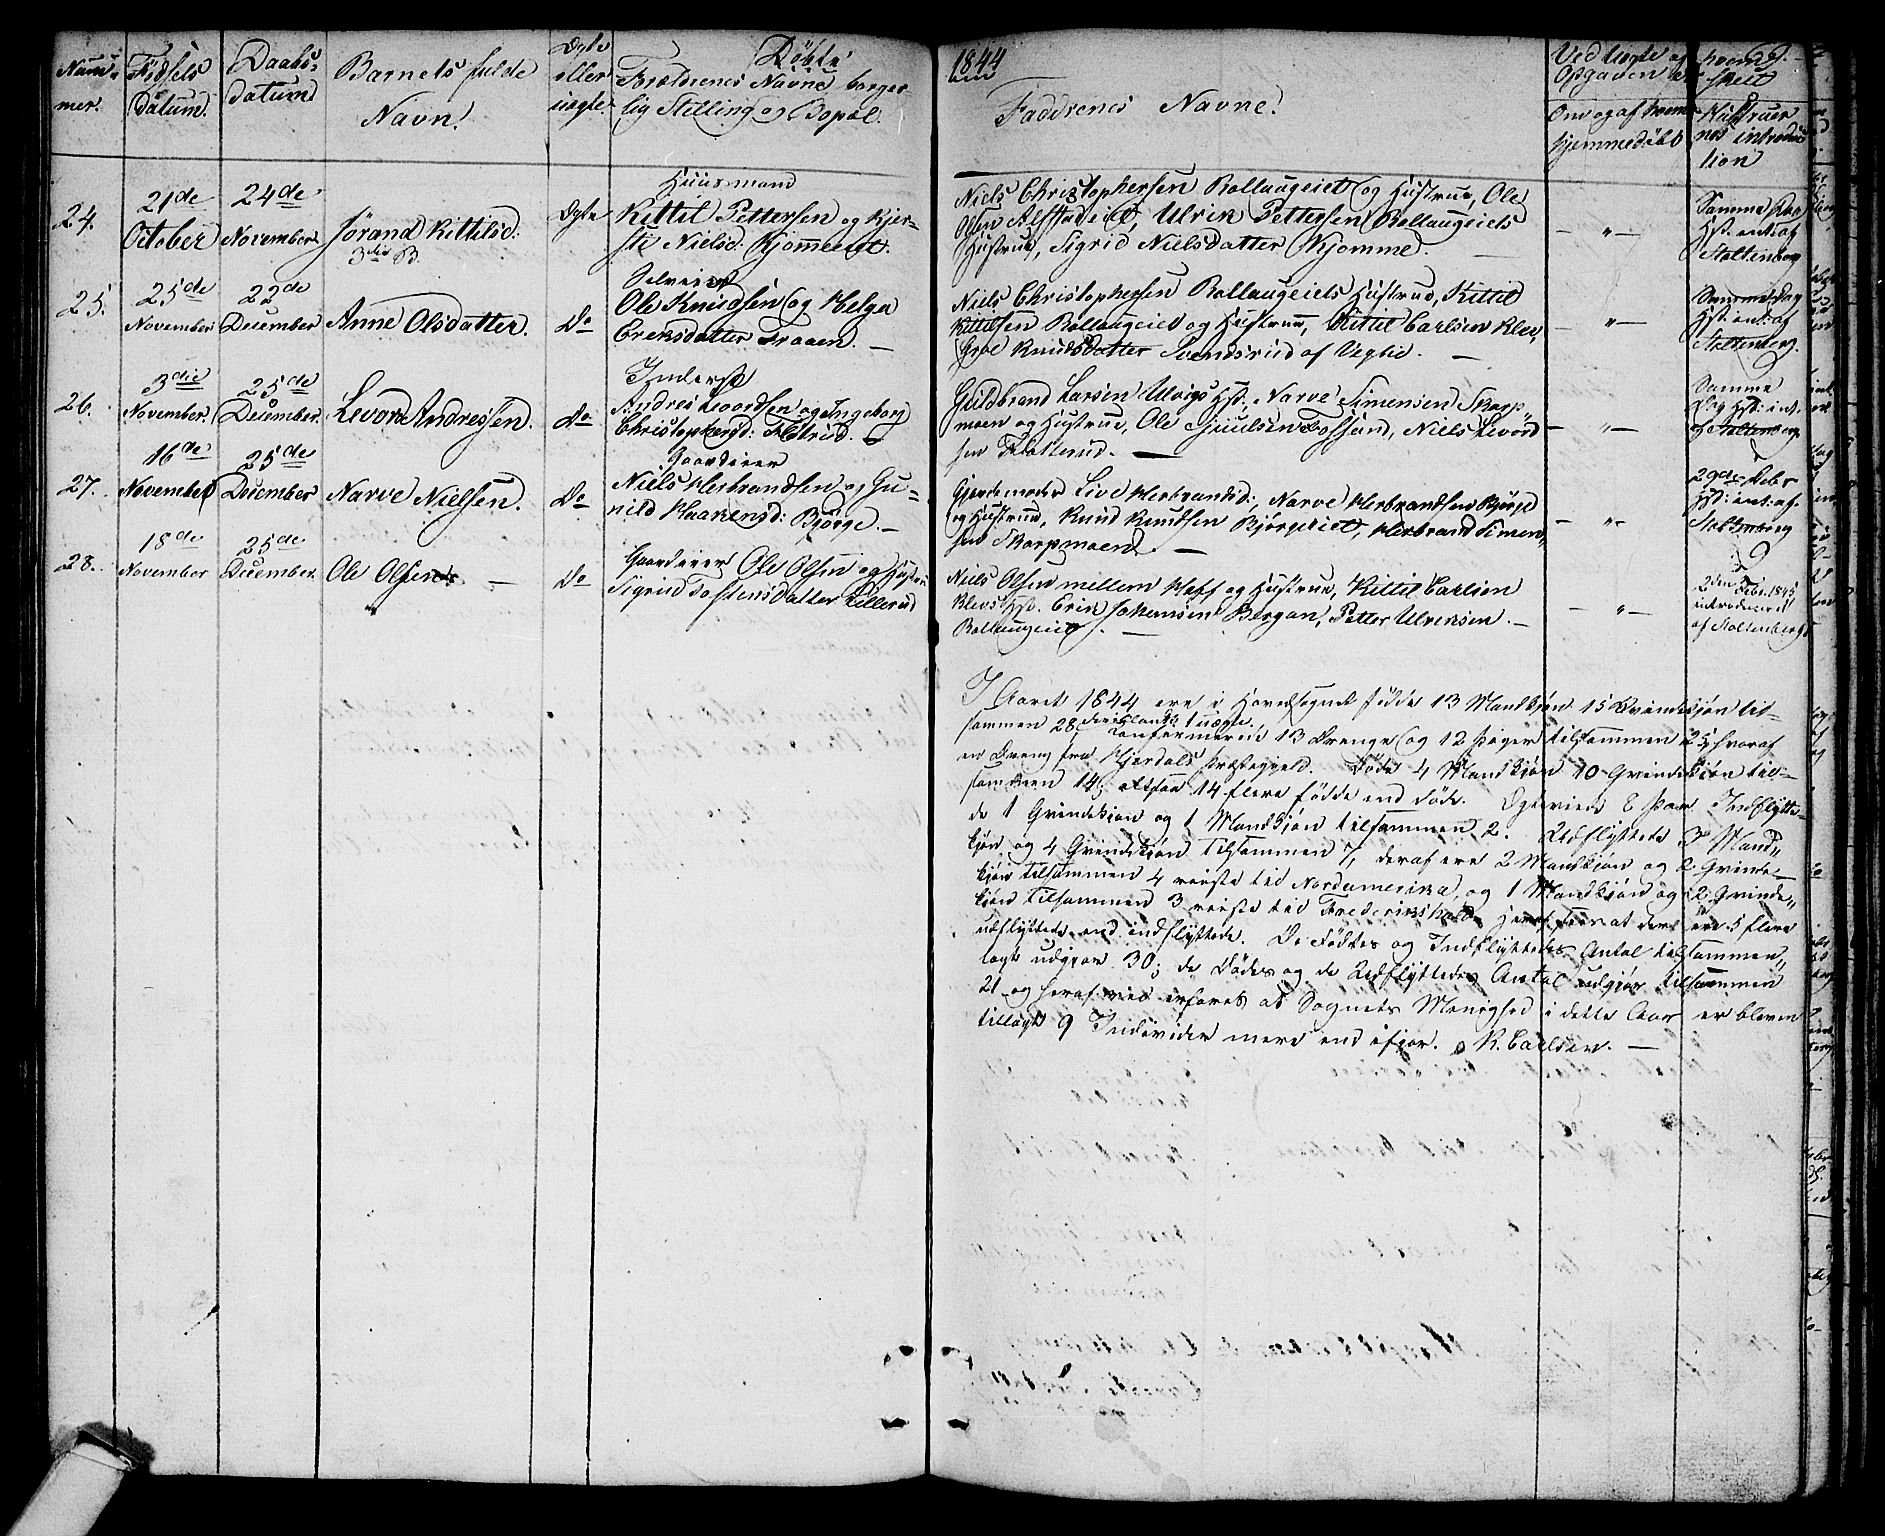 Døbte
1844
Num- Fødsels Daabs- Barnets fulde Ægte Forældrenes Navne borger-
mer. Datum. datum Navn. eller uægte. lig Stilling og Bopæl.
Faddrenes Navne.
Om og af hvem
hjemmedøbt
tion
24. 21de October 24de November Jørand Kittilsd: Ægte
Huusmand
Kittil Pettersen og Kjer-
sti Nielsd: Kjomeeiet.
Niels Christophersen Bollaugeiet og Hustrue, Ole
Olsen Ulrik Pettersen Bollaugeiets
Hustrue, Sigrid Nielsdatter Kjomme.
Samme Dag
Hst: int: af
Stoltenberg
25. 25de November 22de December Anne Olsdatter. Do
Selveier
Ole Knudsen og Helga
Ereksdatter Traaen.
Niels Christophersen Bollaugeiets Hustrue, Kittil
Kittilsen Bollaugeiet og Hustrue, Kittil Carlsen Klev,
Groe Knudsdatter Svendsrud af Veglie.
Samme Dag
Hst: int: af
Stoltenberg.
26. 3die November. 25de December. Levord Andressen. Do
Inderst
Andres Levordsen og Ingeborg
Christophersd:
Guldbrand Larsen Ulvigs Hst:, Narve Simensen Skarp
moen og Hustrue, Ole Juulsen Fossund, Niels Levord
sen Flatterud.
Samme
Dag Hst: int:
af Stoltenberg
27. 16de November 25de December Narve Nielsen. Do
Gaardeier
Niels Herbrandsen og Gu-
nild Haakensd: Bjørge.
Gjordemoder Live Herbrandsd:, Narve Herbrandsen Bjørge
og Hustrue, Knud Knudsen Bjørgeeiet, Herbrand Simen-
sen Skarpmoen.
29de Decbr
Hst: int: af
Stoltenberg
28. 18de November 25de December. Ole Olsen Do
Gaardeier Ole Olsen og Hustru
Sigrid Tostensdatter Lillerud
Niels Olsen mellem Haff og Hustrue, Kittil Carlsen
Klevs Hst. Erik Johannsen Bergan, Petter Ulreksen
Bollaugeiet.
2den Febr. 1845
introduceret
af Stoltenberg
I Aaret 1844 ere i Hovedsognet fødde 13 Mandkjøn 15 Qvindekjøn til-
sammen 28, deriblandt 1 uægte. Konfirmerede 13 Drenge og 12 Piger tilsammen 25 hvoraf
en Dreng fra Hjerdals Præstegjeld. Døde 4 Mandkjøn 10 Qvindekjøn til-
sammen 14, altsaa 14 flere fødde end døde. Ægteviede 8 Par. Indflytte-
de 1 Qvindekjøn og 1 Mandkjøn tilsammen 2. Udflyttede 3 Mand-
kjøn og 4 Qvindekjøn tilsammen 7, deraf ere 2 Mandkjøn og 2 Qvinde-
kjøn tilsammen 4 reiste til Nordamerika, og 1 Mandkjøn og 2 Qvinde-
kjøn tilsammen 3 reiste til Frederikshald. Heraf sees at der ere 5 flere
udflyttede end indflyttede. De Fødtes og Indflyttedes Antal tilsammen-
lagt udgjør 30; de Dødes og de Udflyttedes Antal udgjør tilsammen
21 og heraf vil erfares at Sognets Menighed i dette Aar er bleven
tillagt 9 Individer mere end ifjor. K. Carlsen.